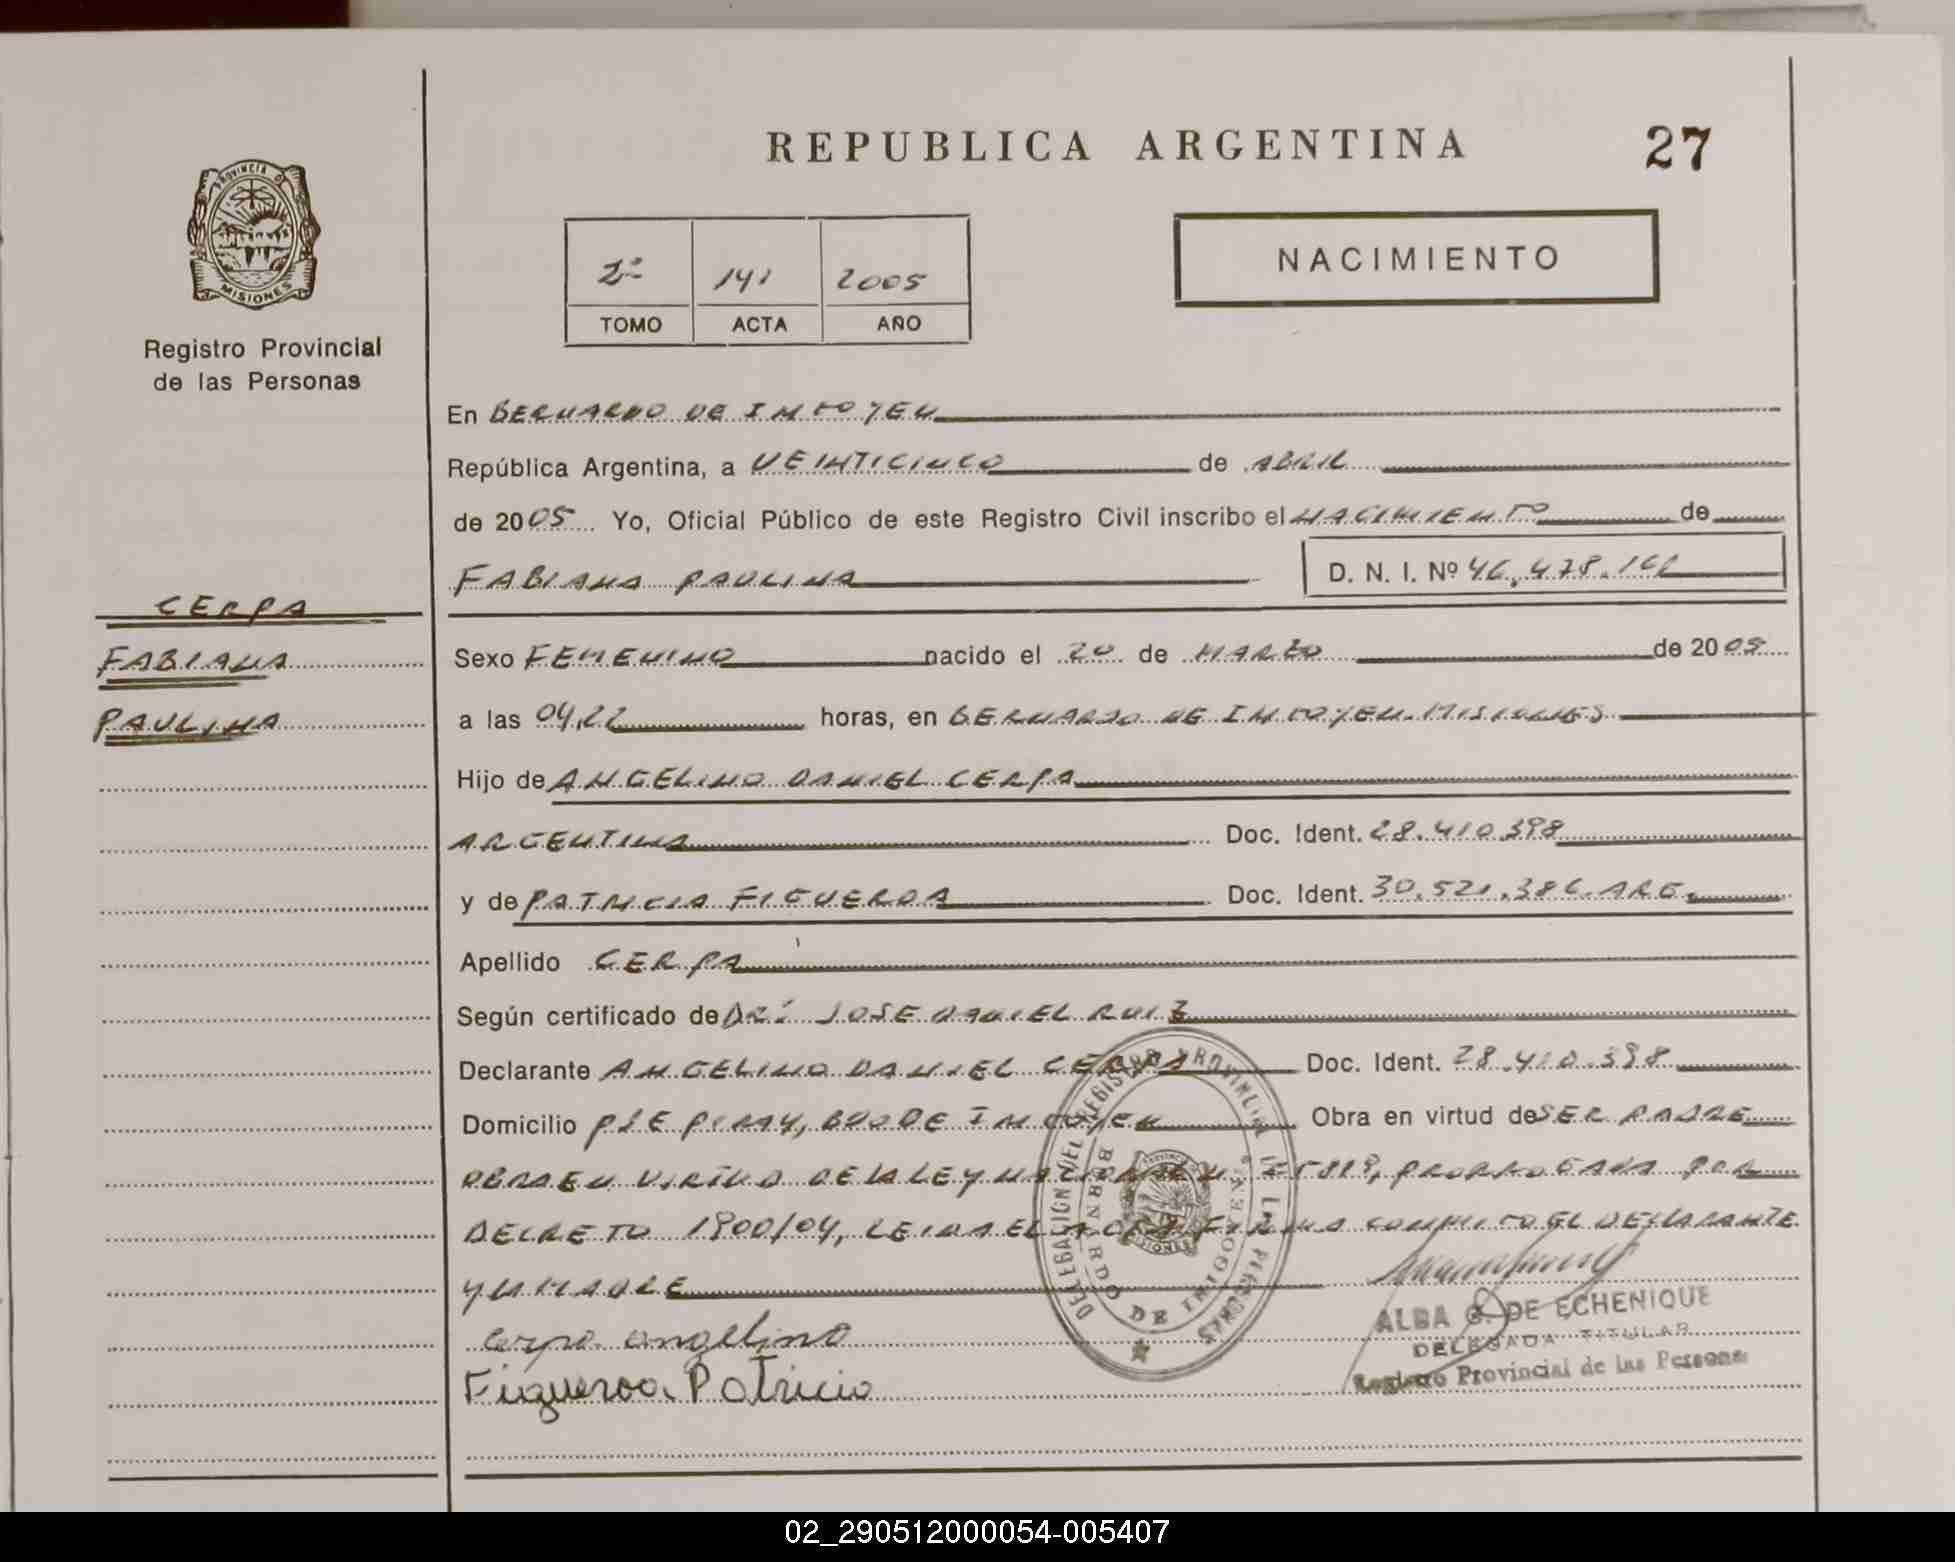 REPUBLICA ARGENTINA
27
PROVINCIA DE
MISIONES
Registro Provincial
de las Personas
2º 141 2005
TOMO ACTA AÑO
NACIMIENTO
En BERNARDO DE IRIGOYEN
República Argentina, a VEINTICINCO de ABRIL
de 2005 Yo, Oficial Público de este Registro Civil inscribo el NACIMIENTO de
FABIANA PAULINA D. N. I. Nº 46.478.
CERPA
FABIANA
PAULINA
Sexo FEMENINO nacido el 20 de MARZO de 2005
a las 04,22 horas, en BERNARDO DE IRIGOYEN. MISIONES
Hijo de ANGELINO DANIEL CERPA
ARGENTINA Doc. Ident. 28.410.398
y de PATRICIA FIGUEROA Doc. Ident. 30.521.386. ARG.
Apellido CERPA
Según certificado de DR: JOSE DANIEL RUIZ
Declarante ANGELINO DANIEL CERPA Doc. Ident. 28.410.398
Domicilio PTE PIRAY, BDO DE IRIGOYEN Obra en virtud de SER PADRE
OBRA EN VIRTUD DE LA LEY NACIONAL N PRORROGADA POR
DECRETO 1900/04, LEIDA EL ACTA FIRMA CONMIGO EL DECLARANTE
Y LA MADRE
Cerpa angelino
Figueroa Patricia
DELEGACION DEL REGISTRO PROVINCIAL DE LAS PERSONAS
BERNARDO DE IRIGOYEN
ALBA G. DE ECHENIQUE
DELEGADA TITULAR
Registro Provincial de las Personas
02_290512000054-005407